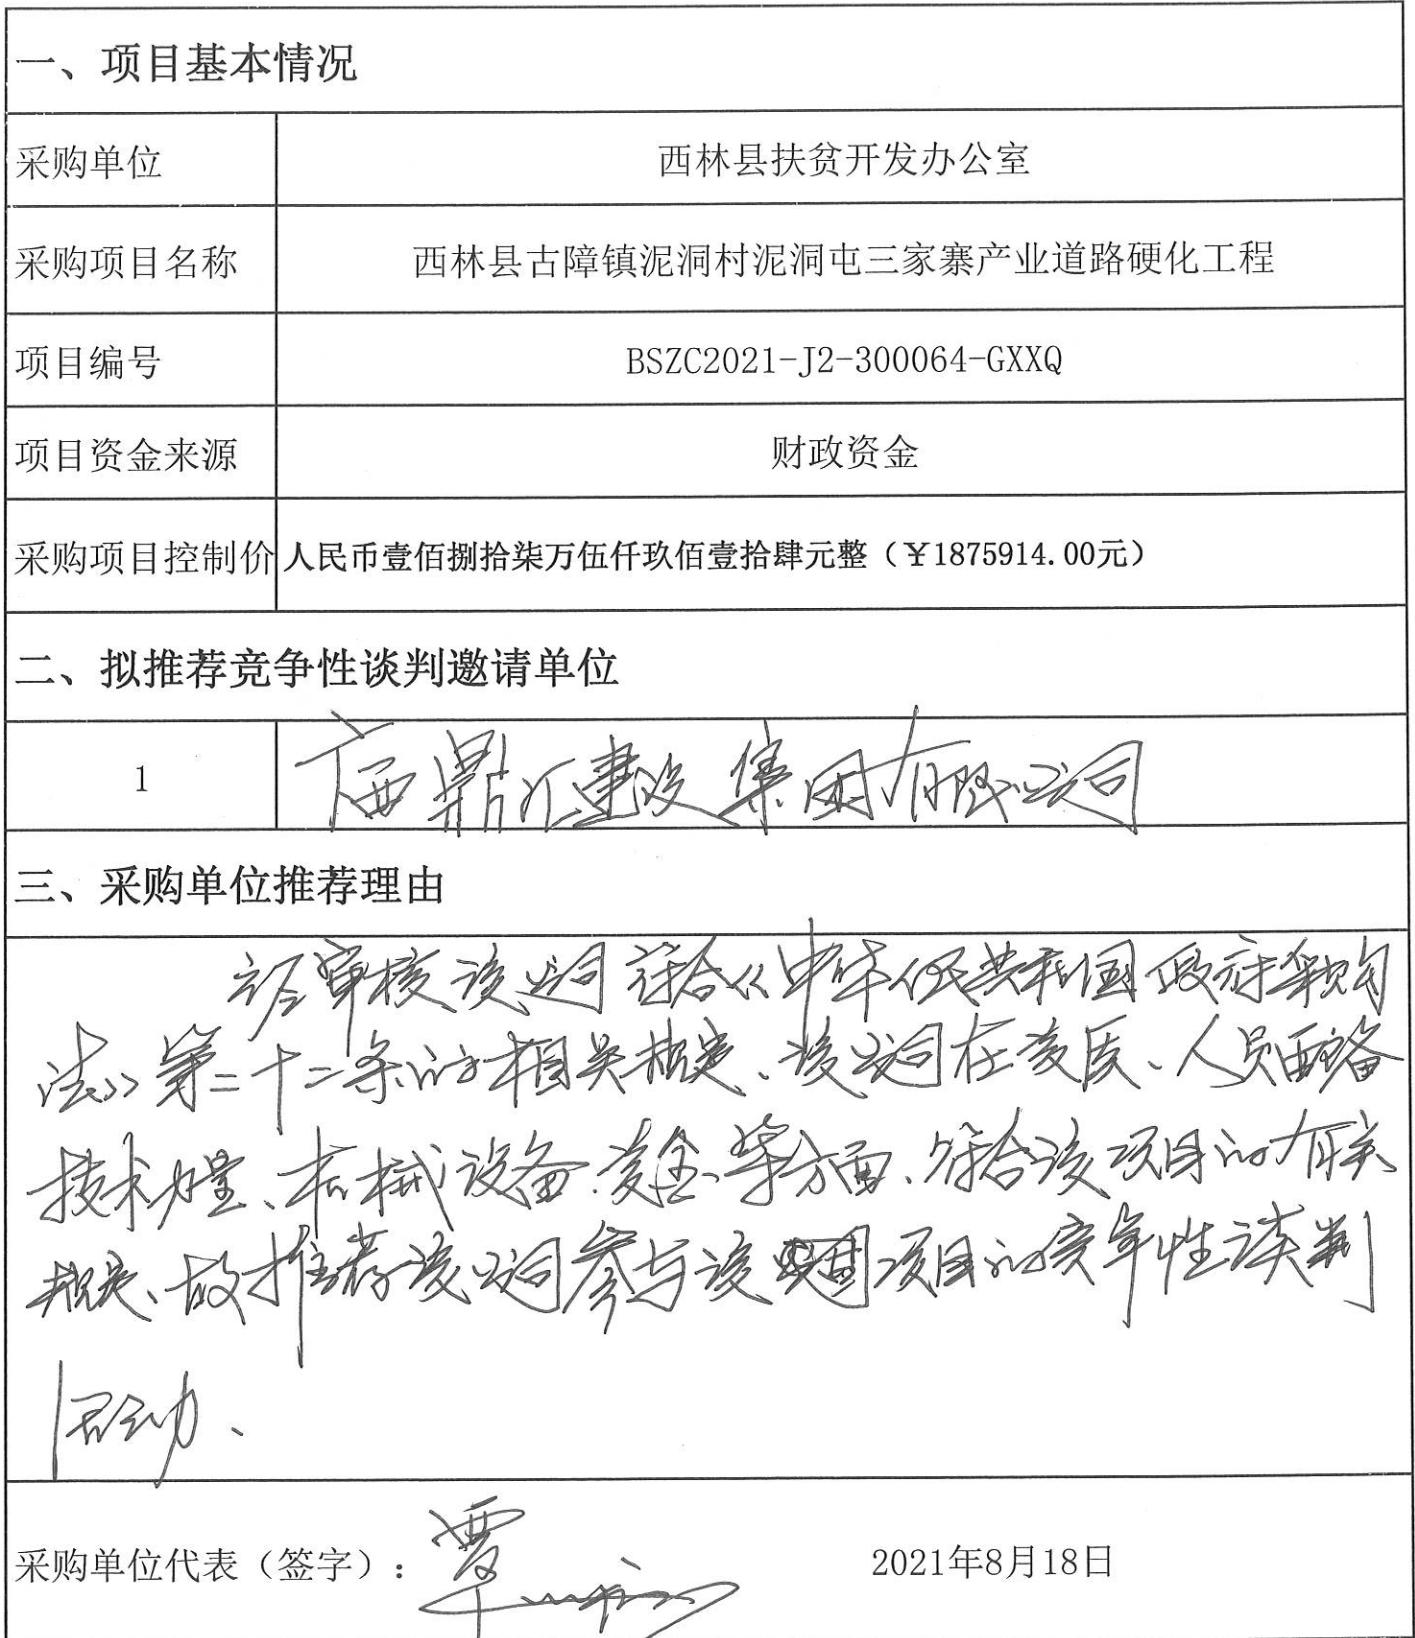 一、项目基本情况
采购单位 西林县扶贫开发办公室
采购项目名称 西林县古障镇泥洞村泥洞屯三家寨产业道路硬化工程
项目编号 BSZC2021-J2-300064-GXXQ
项目资金来源 财政资金
采购项目控制价 人民币壹佰捌拾柒万伍仟玖佰壹拾肆元整（￥1875914.00元）
二、拟推荐竞争性谈判邀请单位
1 广西鼎汇建设集团有限公司
三、采购单位推荐理由
经审核该公司符合《中华人民共和国政府采购
法》第二十二条的相关规定、该公司在资质、人员配备
技术力量、机械设备、资金等方面、符合该项目的有关
规定、故推荐该公司参与该项目的竞争性谈判
活动、
采购单位代表（签字）：覃 2021年8月18日